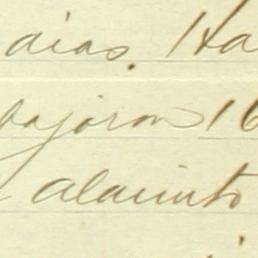 aias. Ha
bajaron 16
Alacinto